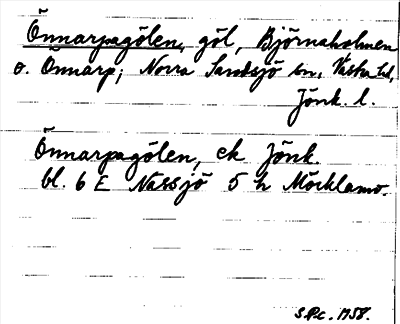 Önnarpagölen, göl, Björnaholmen
o. Önnarp; Norra Sandsjö sn, Västra hd,
Jönk. l.
Önnarpagölen, ek Jönk.
bl. 6 E Nässjö 5 h Möcklamo.
S.P.c. 1958.